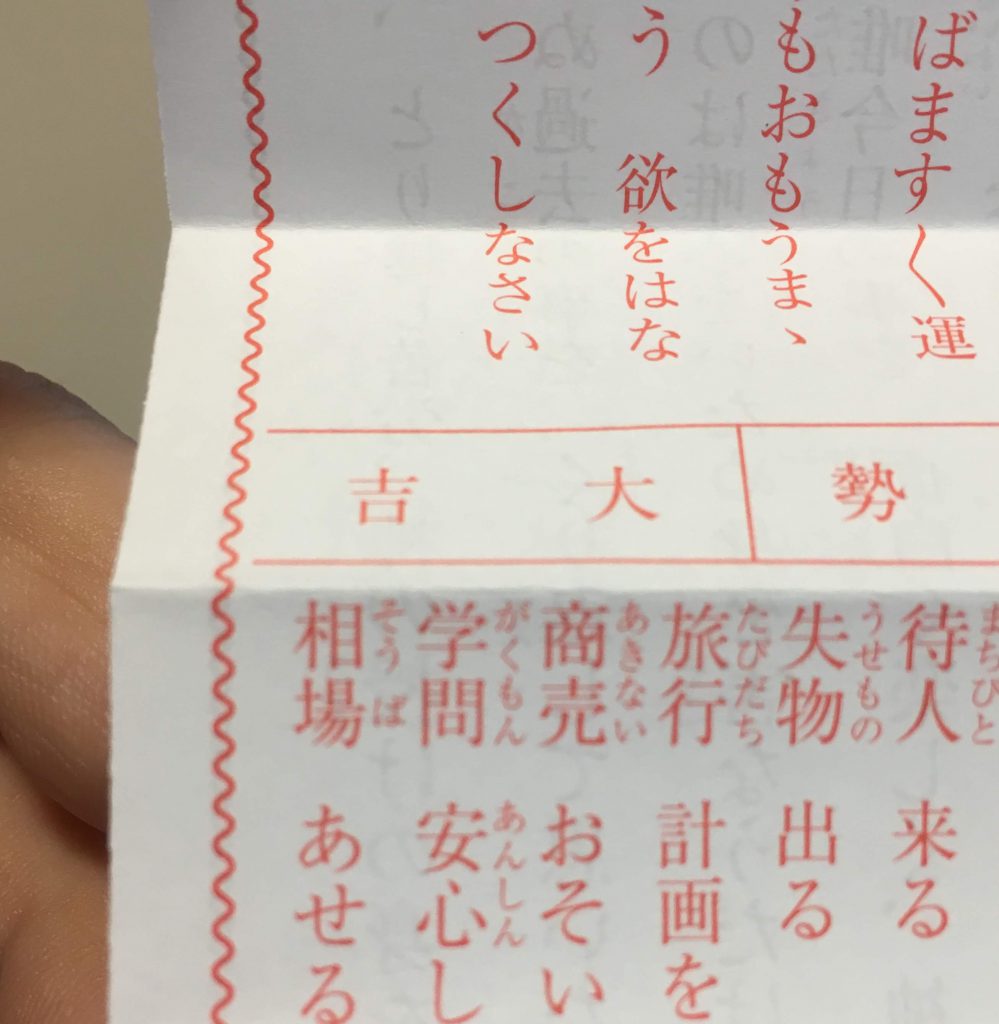 ばますく運
もおもうまゝ
う 欲をはな
つくしなさい
勢
大吉
待人 来る
まちびと
失物 出る
うせもの
旅行 計画を
たびだち
商売 おそい
あきない
学問 安心し
がくもん あんしん
相場 あせる
そうば